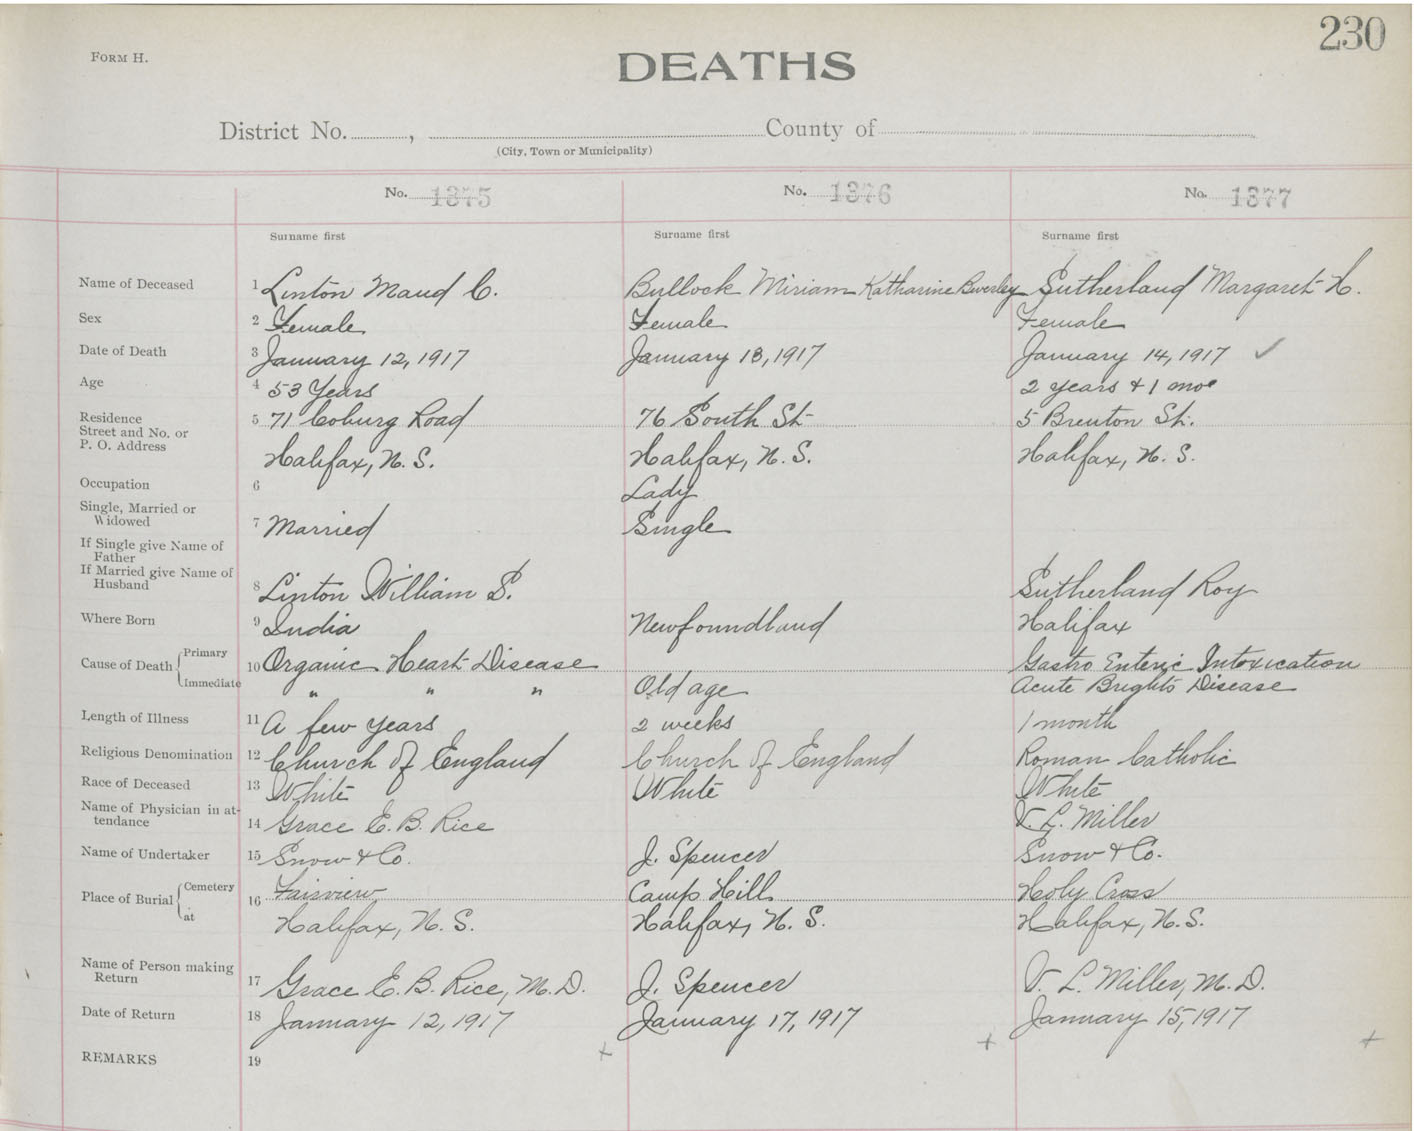 230
FORM H.
DEATHS
District No. , County of
(City, Town or Municipality)
No. 1375 No. 1376 No. 1377
Surname first Surname first Surname first
Name of Deceased 1 Linton Maud C. Bullock Miriam Katharine Beverley Sutherland Margaret H.
Sex 2 Female Female Female
Date of Death 3 January 12, 1917 January 13, 1917 January 14, 1917 ✓
Age 4 53 Years 2 years + 1 mo
Residence
Street and No. or
P. O. Address
5 71 Coburg Road 76 South St 5 Brenton St.
Halifax, N. S. Halifax, N. S. Halifax, N. S.
Occupation 6 Lady
Single, Married or
Widowed
7 Married Single
If Single give Name of
Father
If Married give Name of
Husband
8 Linton William S. Sutherland Roy
Where Born 9 India Newfoundland Halifax
Cause of Death Primary 10 Organic Heart Disease Gastro Enteric Intoxication
Immediate " " " Old age Acute Brights Disease
Length of Illness 11 A few years 2 weeks 1 month
Religious Denomination 12 Church of England Church of England Roman Catholic
Race of Deceased 13 White White White
Name of Physician in at-
tendance
14 Grace E. B. Rice V. L. Miller
Name of Undertaker 15 Snow & Co. J. Spencer Snow & Co.
Place of Burial Cemetery 16 Fairview Camp Hill Holy Cross
at Halifax, N. S. Halifax, N. S. Halifax, N. S.
Name of Person making
Return
17 Grace E. B. Rice, M. D. J. Spencer V. L. Miller, M. D.
Date of Return 18 January 12, 1917 January 17, 1917 January 15, 1917
REMARKS 19 + + +